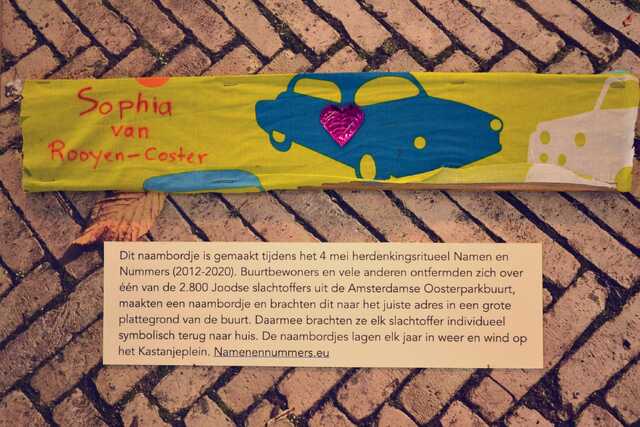 Sophia
van
Rooyen-Coster
Dit naambordje is gemaakt tijdens het 4 mei herdenkingsritueel Namen en
Nummers (2012-2020). Buurtbewoners en vele anderen ontfermden zich over
één van de 2.800 Joodse slachtoffers uit de Amsterdamse Oosterparkbuurt,
maakten een naambordje en brachten dit naar het juiste adres in een grote
plattegrond van de buurt. Daarmee brachten ze elk slachtoffer individueel
symbolisch terug naar huis. De naambordjes lagen elk jaar in weer en wind op
het Kastanjeplein. Namenennummers.eu